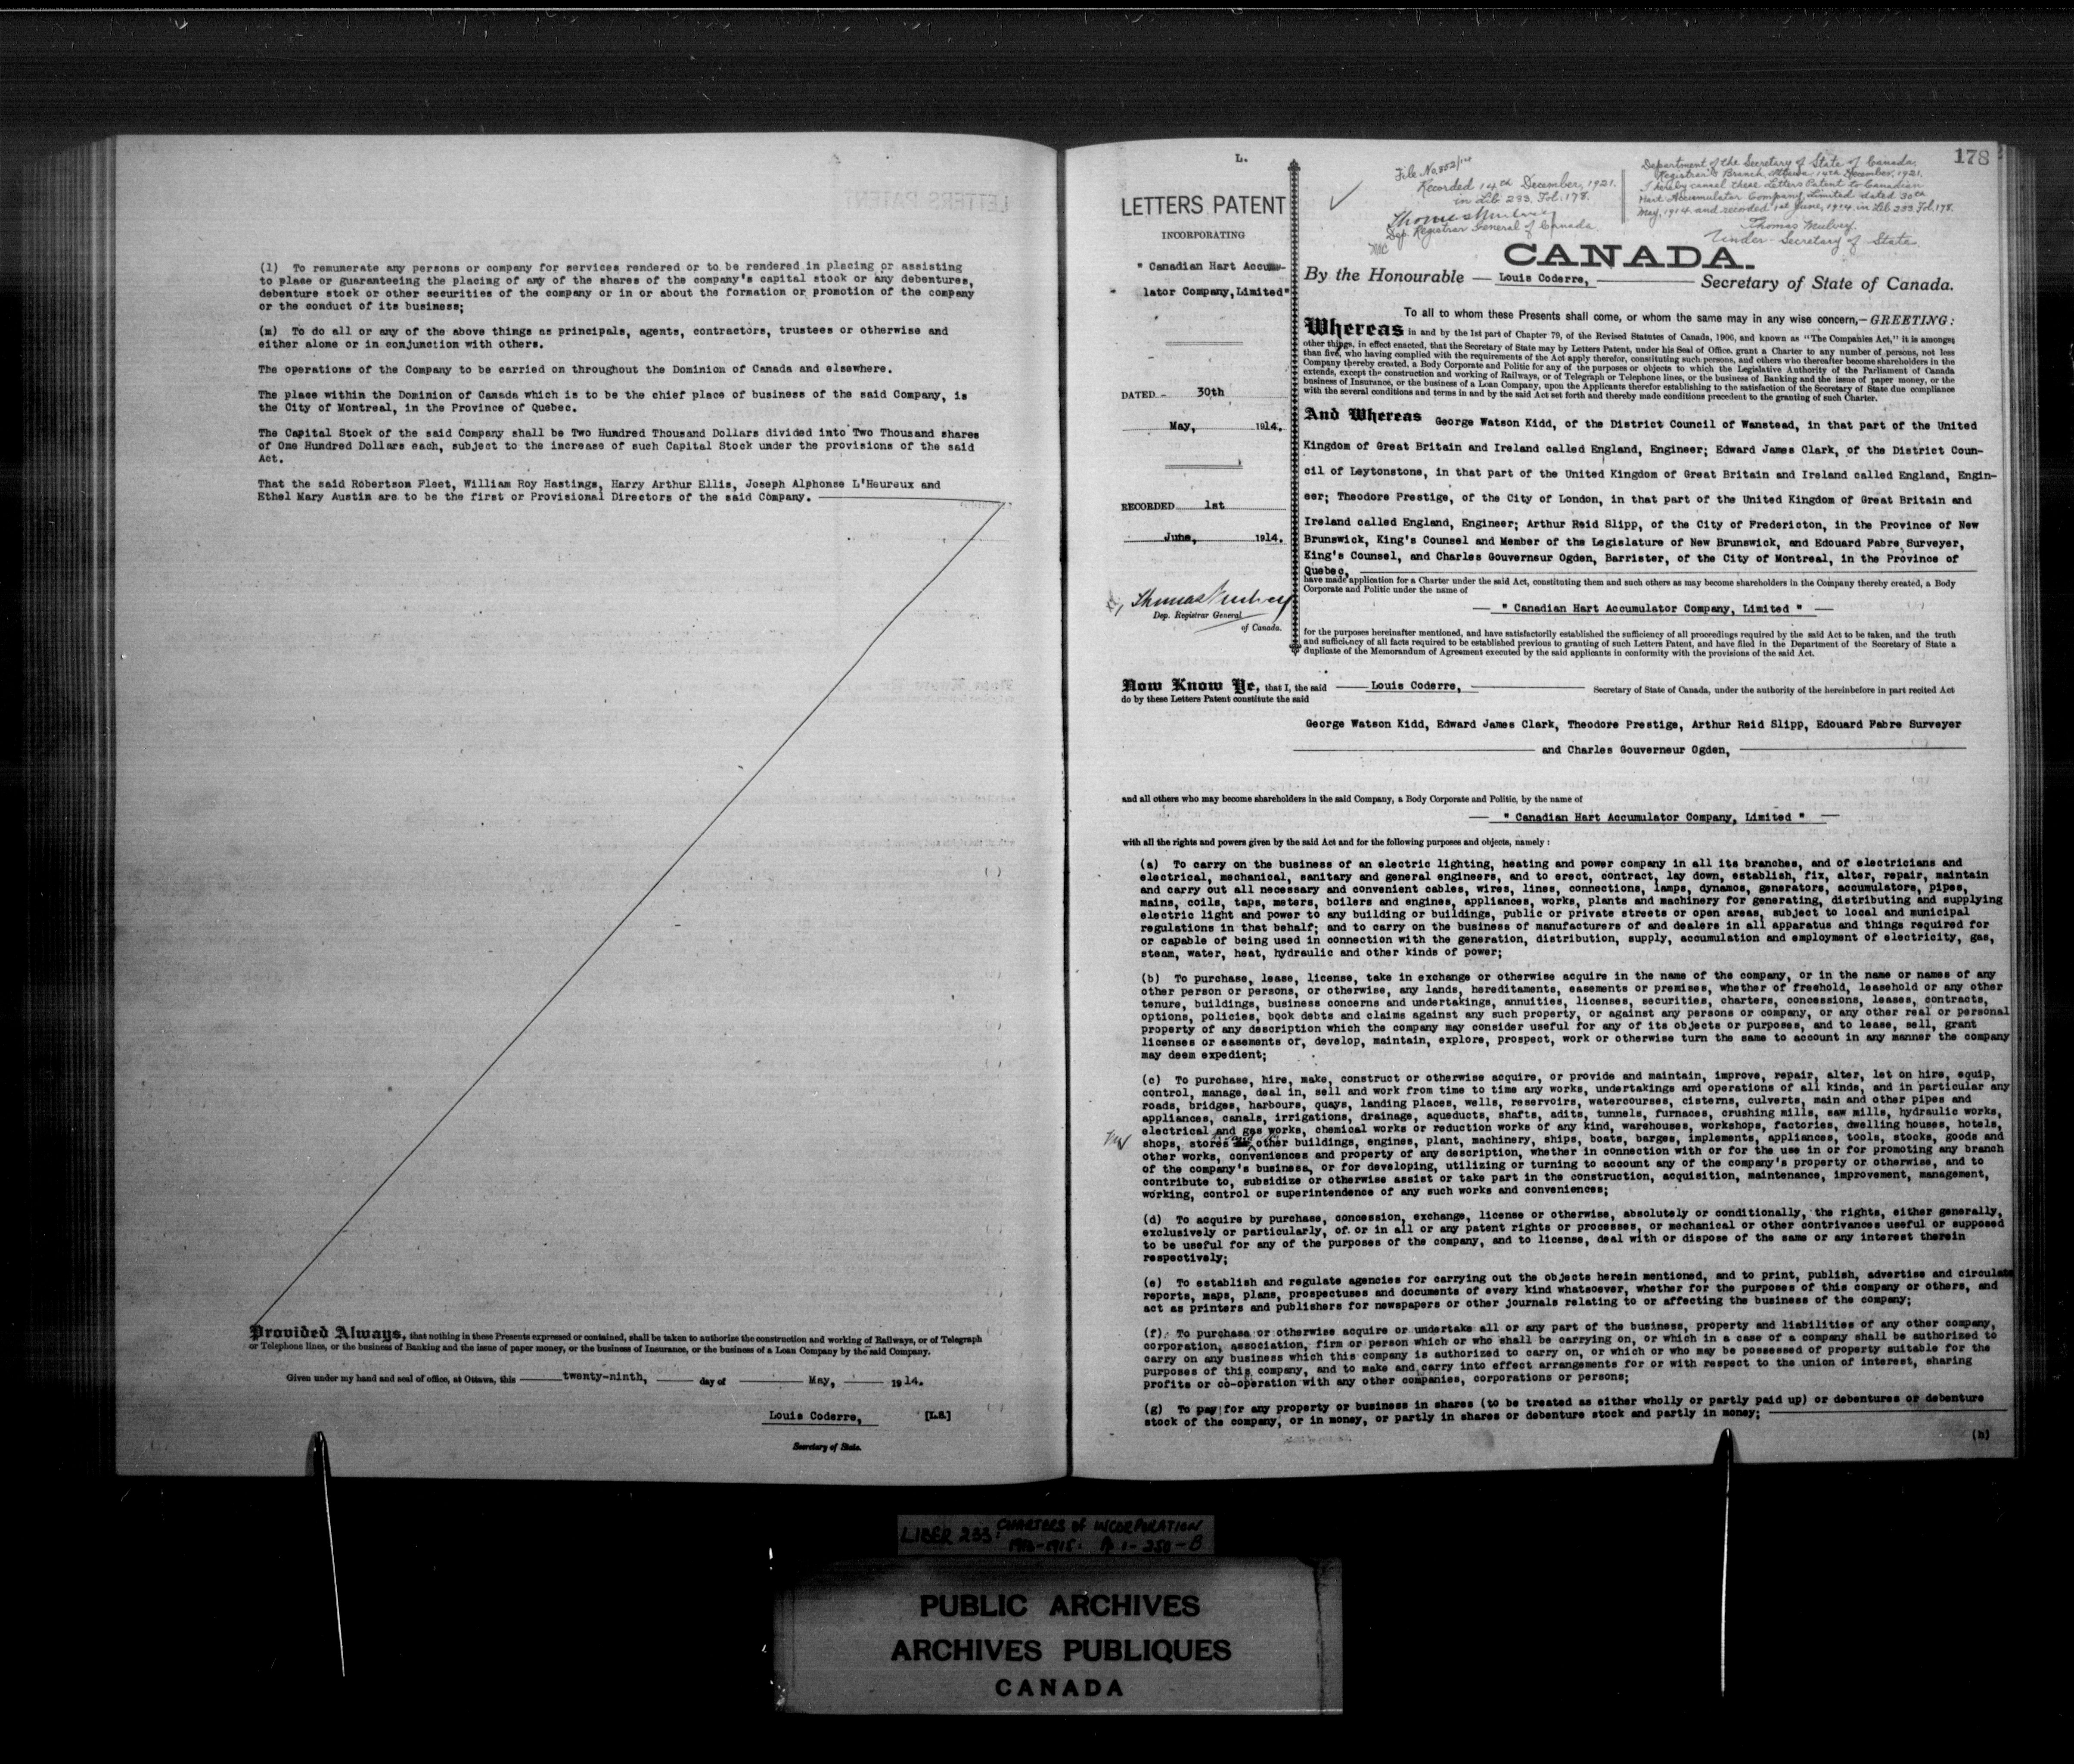 (l) To remunerate any persons or company for services rendered or to be rendered in placing or assisting
to place or guaranteeing the placing of any of the shares of the company's capital stock or any debentures,
debenture stock or other securities of the company or in or about the formation or promotion of the company
or the conduct of its business;
(m) To do all or any of the above things as principals, agents, contractors, trustees or otherwise and
either alone or in conjunction with others.
The operations of the Company to be carried on throughout the Dominion of Canada and elsewhere.
The place within the Dominion of Canada which is to be the chief place of business of the said Company, is
the City of Montreal, in the Province of Quebec.
The Capital Stock of the said Company shall be Two Hundred Thousand Dollars divided into Two Thousand shares
of One Hundred Dollars each, subject to the increase of such Capital Stock under the provisions of the said
Act.
That the said Robertson Fleet, William Roy Hastings, Harry Arthur Ellis, Joseph Alphonse L'Heureux and
Ethel Mary Austin are to be the first or Provisional Directors of the said Company.
Provided Always, that nothing in these Presents expressed or contained, shall be taken to authorize the construction and working of Railways, or of Telegraph
or Telephone lines, or the business of Banking and the issue of paper money, or the business of Insurance, or the business of a Loan Company by the said Company.
Given under my hand and seal of office, at Ottawa, this twenty-ninth, day of May, 1914.
Louis Coderre, [L.S.]
Secretary of State.
L.
178
File No. 852/14
Recorded 14th December, 1921.
in Lib 233. Fol. 178.
Thomas Mulvey
Dep. Registrar General of Canada.
Department of the Secretary of State of Canada,
Registrar's Branch, Ottawa 14th December, 1921.
I hereby cancel these Letters Patent to Canadian
Hart Accumulator Company, Limited dated 30th
May, 1914 and recorded 1st June, 1914 in Lib 233 Fol. 178.
Thomas Mulvey.
Under-Secretary of State.
LETTERS PATENT
INCORPORATING
" Canadian Hart Accumu-
lator Company, Limited"
DATED 30th
May, 1914.
RECORDED 1st
June, 1914.
Thomas Mulvey
Dep. Registrar General
of Canada.
CANADA.
By the Honourable Louis Coderre, Secretary of State of Canada.
To all to whom these Presents shall come, or whom the same may in any wise concern,—GREETING:
Whereas in and by the 1st part of Chapter 79, of the Revised Statutes of Canada, 1906, and known as "The Companies Act," it is amongst
other things, in effect enacted, that the Secretary of State may by Letters Patent, under his Seal of Office, grant a Charter to any number of persons, not less
than five, who having complied with the requirements of the Act apply therefor, constituting such persons, and others who thereafter become shareholders in the
Company thereby created, a Body Corporate and Politic for any of the purposes or objects to which the Legislative Authority of the Parliament of Canada
extends, except the construction and working of Railways, or of Telegraph or Telephone lines, or the business of Banking and the issue of paper money, or the
business of Insurance, or the business of a Loan Company, upon the Applicants therefor establishing to the satisfaction of the Secretary of State due compliance
with the several conditions and terms in and by the said Act set forth and thereby made conditions precedent to the granting of such Charter.
And Whereas George Watson Kidd, of the District Council of Wanstead, in that part of the United
Kingdom of Great Britain and Ireland called England, Engineer; Edward James Clark, of the District Coun-
cil of Leytonstone, in that part of the United Kingdom of Great Britain and Ireland called England, Engin-
eer; Theodore Prestige, of the City of London, in that part of the United Kingdom of Great Britain and
Ireland called England, Engineer; Arthur Reid Slipp, of the City of Fredericton, in the Province of New
Brunswick, King's Counsel and Member of the Legislature of New Brunswick, and Edouard Fabre Surveyer,
King's Counsel, and Charles Gouverneur Ogden, Barrister, of the City of Montreal, in the Province of
Quebec,
have made application for a Charter under the said Act, constituting them and such others as may become shareholders in the Company thereby created, a Body
Corporate and Politic under the name of
" Canadian Hart Accumulator Company, Limited "
for the purposes hereinafter mentioned, and have satisfactorily established the sufficiency of all proceedings required by the said Act to be taken, and the truth
and sufficiency of all facts required to be established previous to granting of such Letters Patent, and have filed in the Department of the Secretary of State a
duplicate of the Memorandum of Agreement executed by the said applicants in conformity with the provisions of the said Act.
Now Know Ye, that I, the said Louis Coderre, Secretary of State of Canada, under the authority of the hereinbefore in part recited Act
do by these Letters Patent constitute the said
George Watson Kidd, Edward James Clark, Theodore Prestige, Arthur Reid Slipp, Edouard Fabre Surveyer
and Charles Gouverneur Ogden,
and all others who may become shareholders in the said Company, a Body Corporate and Politic, by the name of
" Canadian Hart Accumulator Company, Limited "
with all the rights and powers given by the said Act and for the following purposes and objects, namely :
(a) To carry on the business of an electric lighting, heating and power company in all its branches, and of electricians and
electrical, mechanical, sanitary and general engineers, and to erect, contract, lay down, establish, fix, alter, repair, maintain
and carry out all necessary and convenient cables, wires, lines, connections, lamps, dynamos, generators, accumulators, pipes,
mains, coils, taps, meters, boilers and engines, appliances, works, plants and machinery for generating, distributing and supplying
electric light and power to any building or buildings, public or private streets or open areas, subject to local and municipal
regulations in that behalf; and to carry on the business of manufacturers of and dealers in all apparatus and things required for
or capable of being used in connection with the generation, distribution, supply, accumulation and employment of electricity, gas,
steam, water, heat, hydraulic and other kinds of power;
(b) To purchase, lease, license, take in exchange or otherwise acquire in the name of the company, or in the name or names of any
other person or persons, or otherwise, any lands, hereditaments, easements or premises, whether of freehold, leasehold or any other
tenure, buildings, business concerns and undertakings, annuities, licenses, securities, charters, concessions, leases, contracts,
options, policies, book debts and claims against any such property, or against any persons or company, or any other real or personal
property of any description which the company may consider useful for any of its objects or purposes, and to lease, sell, grant
licenses or easements of, develop, maintain, explore, prospect, work or otherwise turn the same to account in any manner the company
may deem expedient;
(c) To purchase, hire, make, construct or otherwise acquire, or provide and maintain, improve, repair, alter, let on hire, equip,
control, manage, deal in, sell and work from time to time any works, undertakings and operations of all kinds, and in particular any
roads, bridges, harbours, quays, landing places, wells, reservoirs, watercourses, cisterns, culverts, main and other pipes and
appliances, canals, irrigations, drainage, aqueducts, shafts, adits, tunnels, furnaces, crushing mills, saw mills, hydraulic works,
electrical and gas works, chemical works or reduction works of any kind, warehouses, workshops, factories, dwelling houses, hotels,
shops, stores and other buildings, engines, plant, machinery, ships, boats, barges, implements, appliances, tools, stocks, goods and
other works, conveniences and property of any description, whether in connection with or for the use in or for promoting any branch
of the company's business, or for developing, utilizing or turning to account any of the company's property or otherwise, and to
contribute to, subsidize or otherwise assist or take part in the construction, acquisition, maintenance, improvement, management,
working, control or superintendence of any such works and conveniences;
(d) To acquire by purchase, concession, exchange, license or otherwise, absolutely or conditionally, the rights, either generally,
exclusively or particularly, of or in all or any patent rights or processes, or mechanical or other contrivances useful or supposed
to be useful for any of the purposes of the company, and to license, deal with or dispose of the same or any interest therein
respectively;
(e) To establish and regulate agencies for carrying out the objects herein mentioned, and to print, publish, advertise and circulate
reports, maps, plans, prospectuses and documents of every kind whatsoever, whether for the purposes of this company or others, and
act as printers and publishers for newspapers or other journals relating to or affecting the business of the company;
(f) To purchase or otherwise acquire or undertake all or any part of the business, property and liabilities of any other company,
corporation, association, firm or person which or who shall be carrying on, or which in a case of a company shall be authorized to
carry on any business which this company is authorized to carry on, or which or who may be possessed of property suitable for the
purposes of this company, and to make and carry into effect arrangements for or with respect to the union of interest, sharing
profits or co-operation with any other companies, corporations or persons;
(g) To pay for any property or business in shares (to be treated as either wholly or partly paid up) or debentures or debenture
stock of the company, or in money, or partly in shares or debenture stock and partly in money;
(h)
LIBER 233: CHARTERS OF INCORPORATION
PUBLIC ARCHIVES
ARCHIVES PUBLIQUES
CANADA